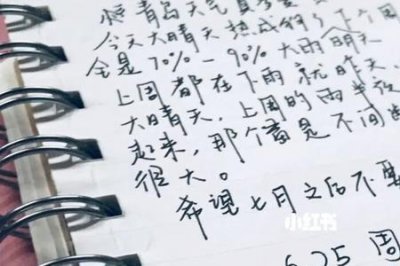 恒青岛天气真
今天大晴天热成狗了下个周
全是70%-90%大雨 明天
上周都在下雨就昨天、
大晴天,上周的雨
起来,那个 是不间
很大。
希望七月之后不要
小红书
6.25 周